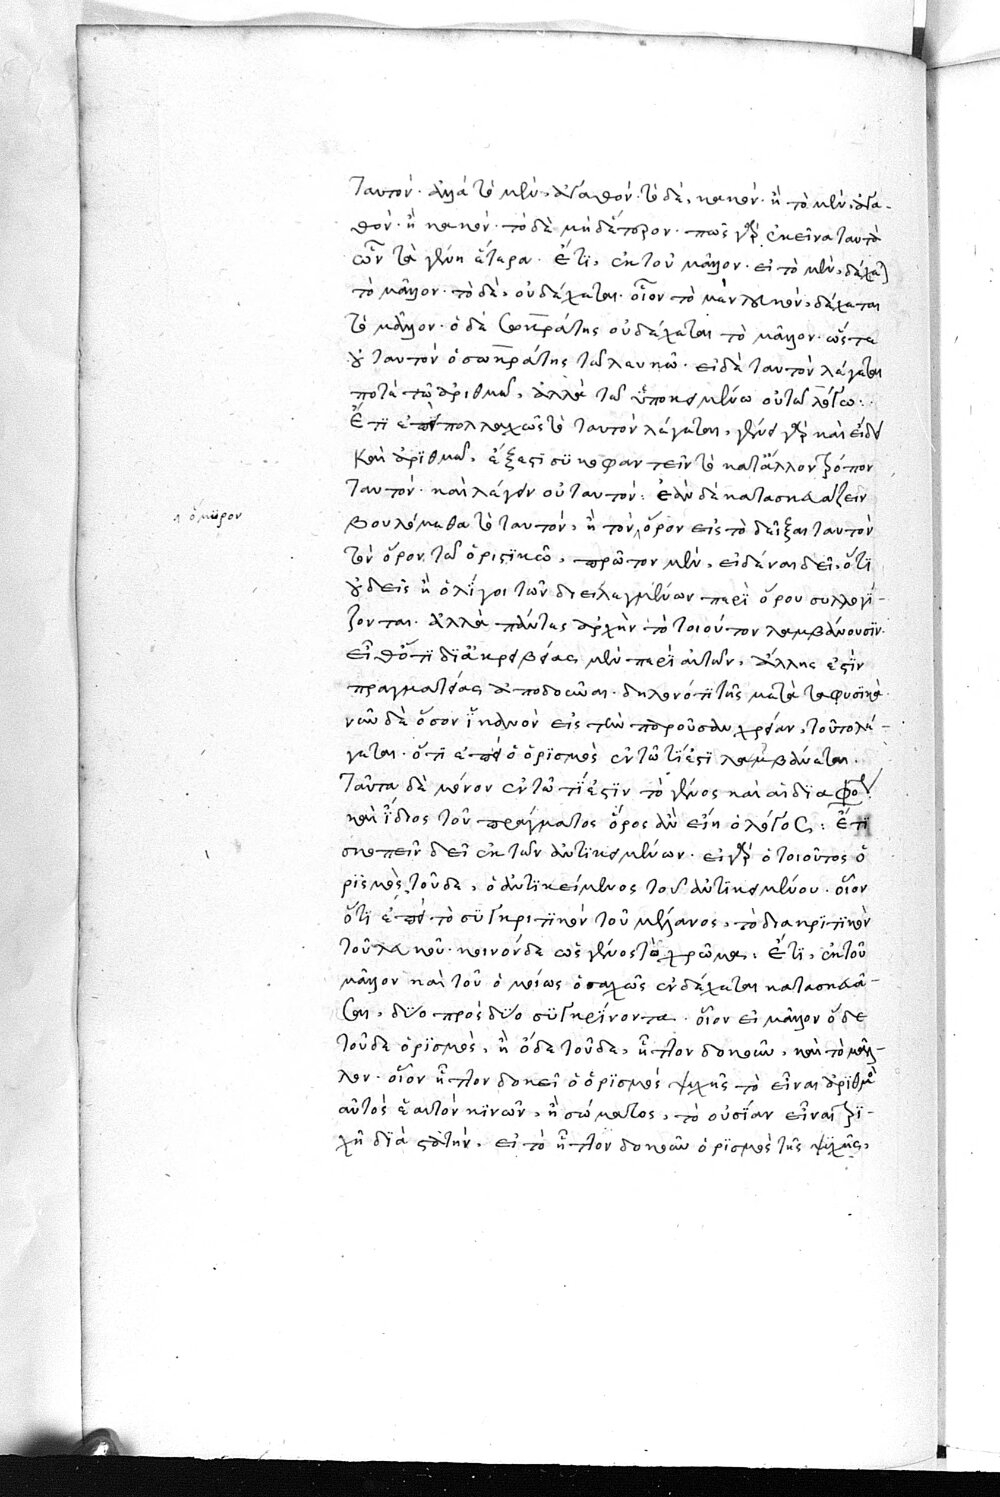 ταυτόν· ἀλλὰ τὸ μὲν, ἀγαθόν· τὸ δὲ, κακόν· ἢ τὸ μὲν, ἀγα-
θόν· ἢ κακόν· τὸ δὲ μηδέτερον· πῶς γὰρ ἐκεῖνα ταυτὸ
ὧν τὰ γένη ἕτερα· Ἔτι, ἐκ τοῦ μᾶλλον· εἰ τὸ μὲν, δέχεται
τὸ μᾶλλον· τὸ δὲ, οὐ δέχεται· οἷον τὸ μὲν λευκὸν, δέχεται
τὸ μᾶλλον· ὁ δὲ Σωκράτης οὐ δέχεται τὸ μᾶλλον· ὥστε
οὐ ταυτὸν ὁ σωκράτης τῶ λευκῶ· εἰ δὲ ταυτὸν λέγεται
ποτὲ τῶ ἀριθμῶ, ἀλλὰ τῶ ὑποκειμένω οὕτω λέγω:
Ἔτι ἐπεὶ πολλαχῶς τὸ ταυτὸν λέγεται, γένει γὰρ καὶ εἴδει
καὶ ἀριθμῶ, ἔξεστι συκοφαντεῖν τὸ κατ' ἄλλον τρόπον
ταυτόν· καὶ λέγειν οὐ ταυτόν: Ἐὰν δὲ κατασκευάζειν
βουλόμεθα τὸ ταυτὸν, ἢ τὸν ὅρον εἰς τὸ δεῖξαι ταυτὸν
τὸν ὅρον τῶ ὁριστικῶ, πρῶτον μὲν, εἰδέναι δεῖ, ὅτι
οὐδεὶς ἢ ὀλίγοι τῶν διειλεγμένων περὶ ὅρου συλλογί-
ζονται· ἀλλὰ πάντες ἀρχὴν τὸ τοιοῦτον λαμβάνουσιν·
εἶθ' ὅτι δι' ἀκριβείας μὲν περὶ αὐτῶν, ἄλλης ἐστὶν
πραγματείας ἀποδοῦναι· δηλονότι τῆς μετὰ τὰ φυσικά·
νῦν δὲ ὅσον ἱκανὸν εἰς τὴν παροῦσαν χρείαν, τοῦτο λέ-
γεται· ὅτι ἐπεὶ ὁ ὁρισμὸς ἐν τῶ τί ἐστι λαμβάνεται·
ταῦτα δὲ μόνον ἐν τῶ τί ἐστιν τὸ γένος καὶ αἱ διαφοραί·
καὶ ἴδιος τοῦ πράγματος ὅρος ἂν εἴη ὁ λόγος: Ἔτι
σκοπεῖν δεῖ ἐκ τῶν ἀντικειμένων· εἰ γὰρ ὁ τοιοῦτος ὁ
ρισμὸς τοῦδε, ὁ ἀντικείμενος τοῦ ἀντικειμένου· οἷον
ὅτι ἐπεὶ τὸ συγκριτικὸν τοῦ μέλανος, τὸ διακριτικὸν
τοῦ λευκοῦ· κοινὸν δὲ ὡς γένος τὸ χρῶμα: Ἔτι, ἐκ τοῦ
μᾶλλον καὶ τοῦ ὁμοίως ὁσαχῶς ἐνδέχεται κατασκευά-
σαι, δύο πρὸς δύο συγκρίνοντα· οἷον εἰ μᾶλλον ὅδε
τοῦδε ὁρισμὸς, ἢ ὅδε τοῦδε, ἧττον δοκῶν, καὶ τὸ μᾶλ-
λον· οἷον ἧττον δοκεῖ ὁ ὁρισμὸς ψυχῆς τὸ εἶναι ἀριθμὸς
αὐτὸς ἑαυτὸν κινῶν, ἢ σώματος, τὸ οὐσίαν εἶναι τρι-
χῆ διαστατήν· εἰ τὸ ἧττον δοκῶν ὁρισμὸς τῆς ψυχῆς,